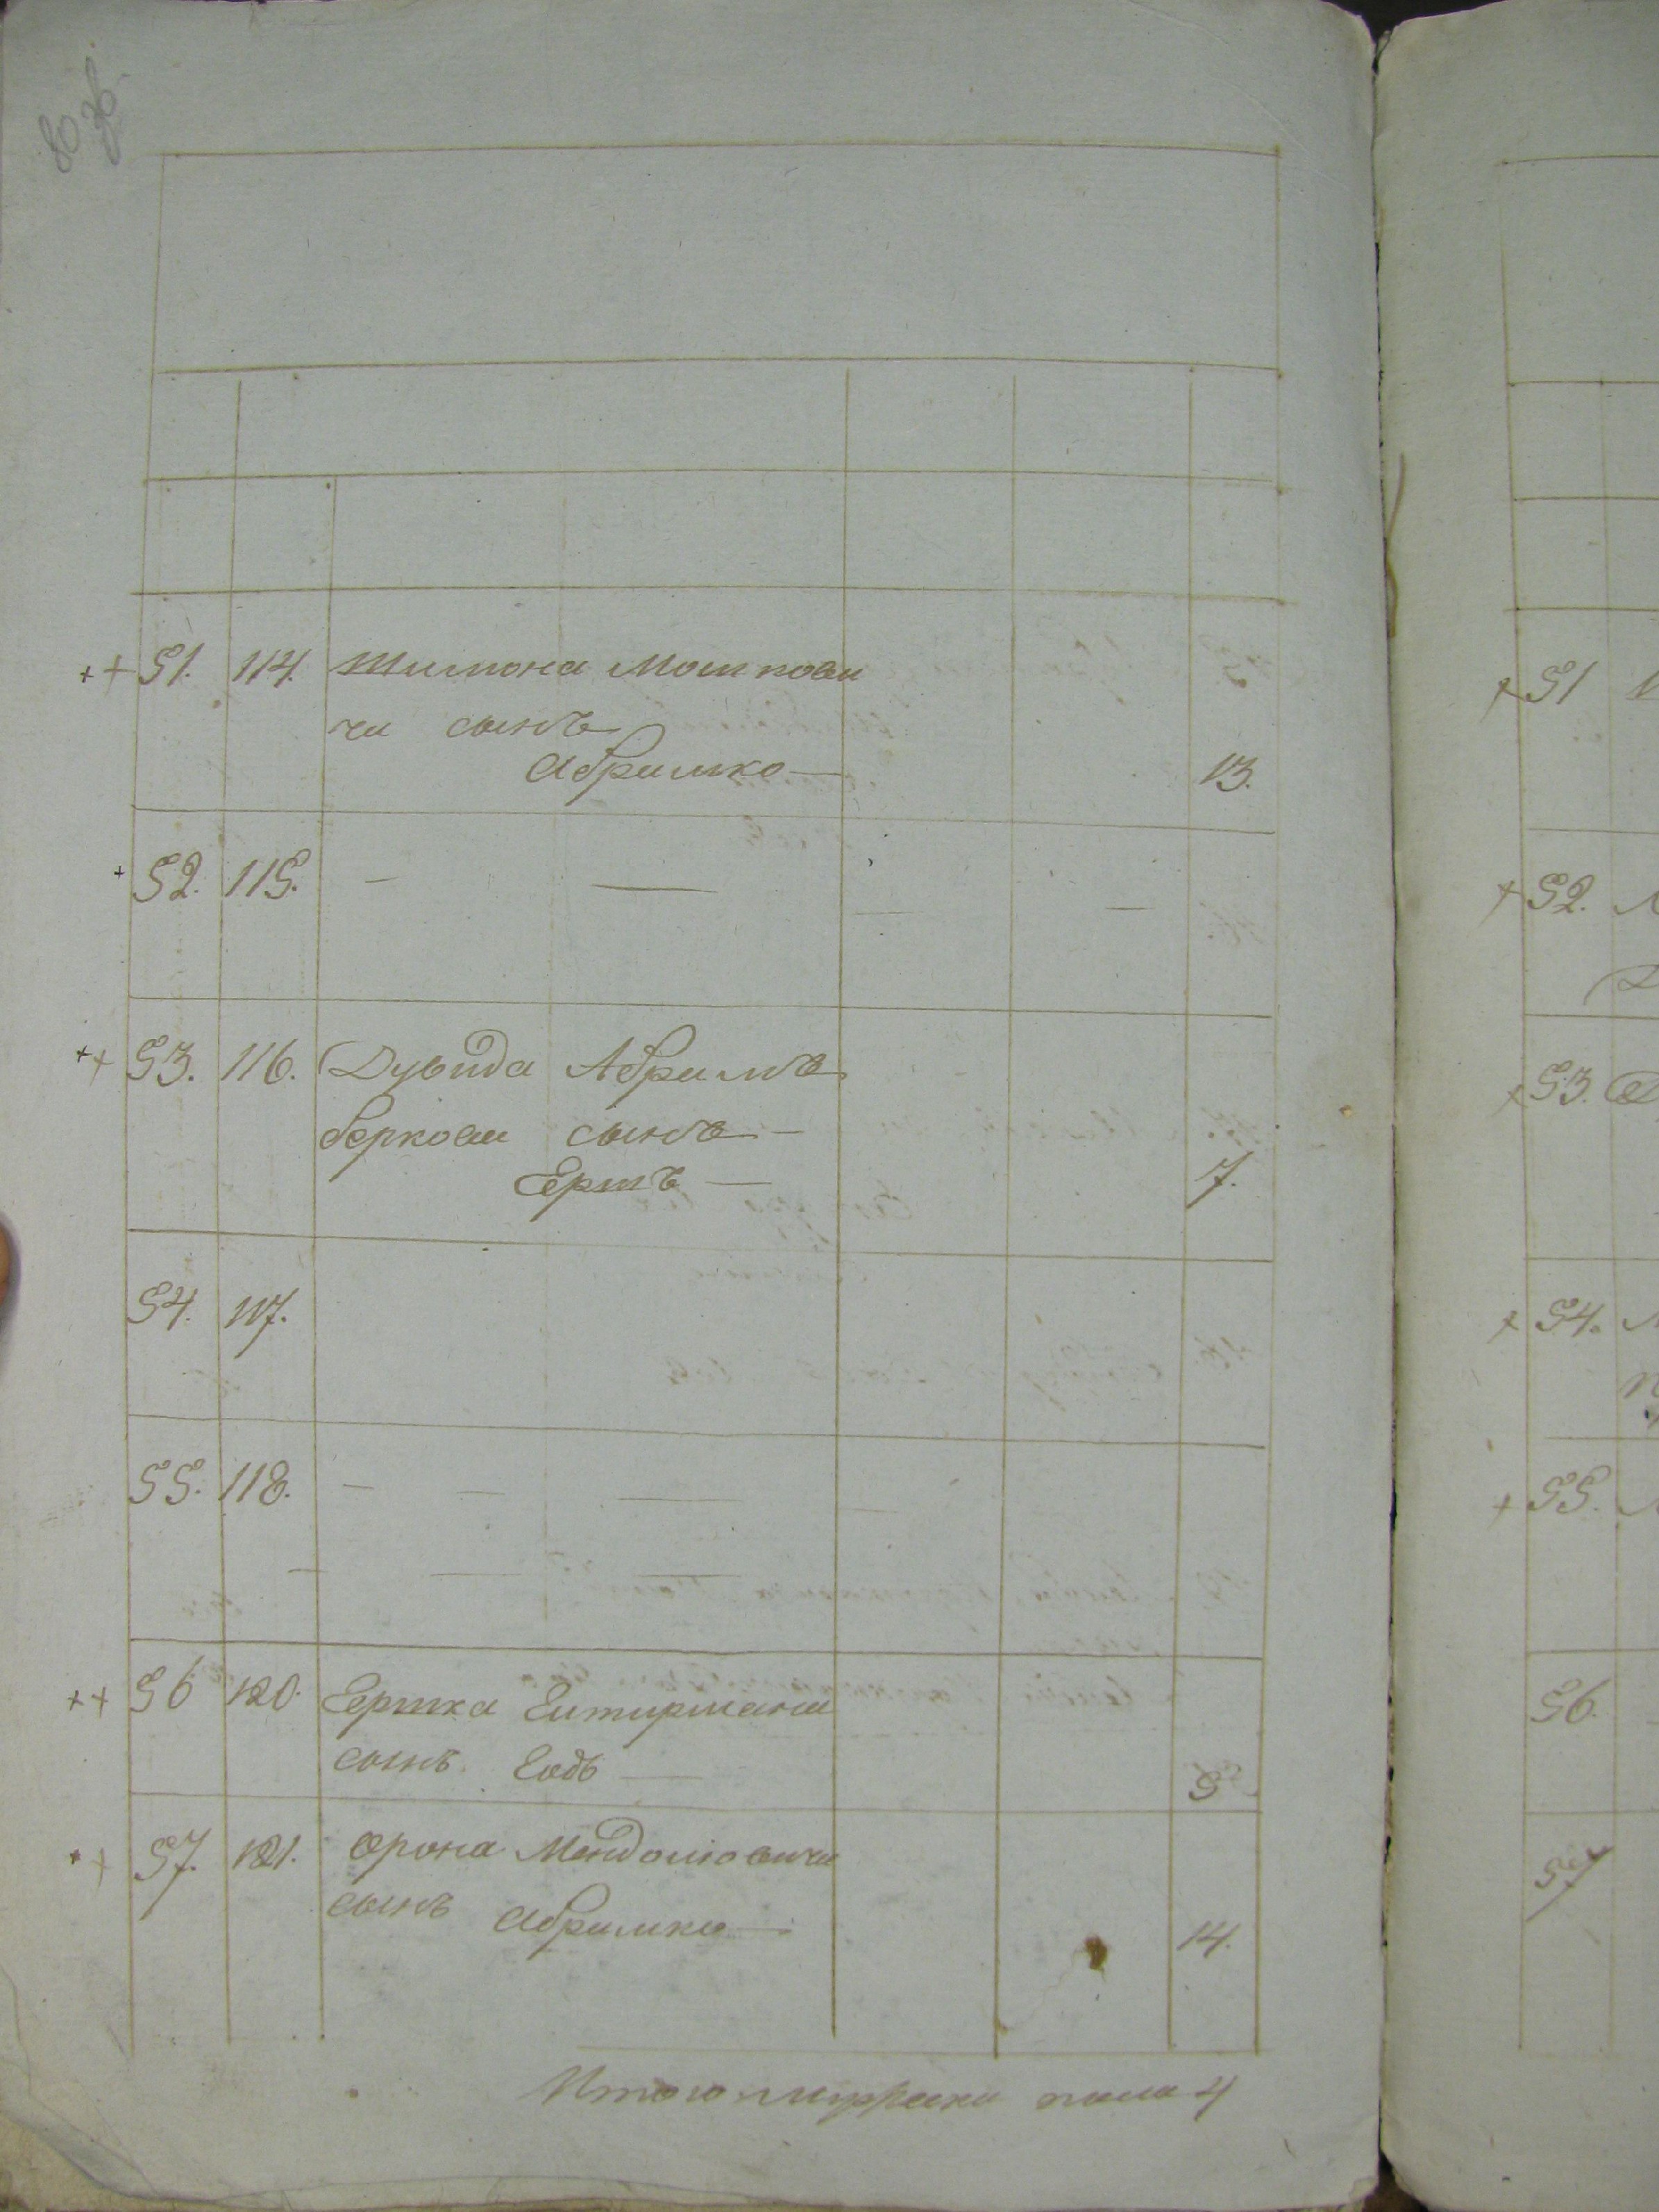 80 об
++ 51. 114. Шимона Мошкови
ча сынъ
Абрамко — 13.
+ 52. 115. — — — —
++ 53. 116. Дувида Абрамъ
Беркови сынъ —
Ершъ — 7.
54. 117.
55. 118. — — — —
— — —
++ 56 120. Ершка
сынъ — 5
++ 57. 121. Орона Мендолювича
сынъ Абрамко — 14.
Итого мужеска пола 4
+ 51
+ 52.
+ 53.
+ 54.
+ 55.
56.
57